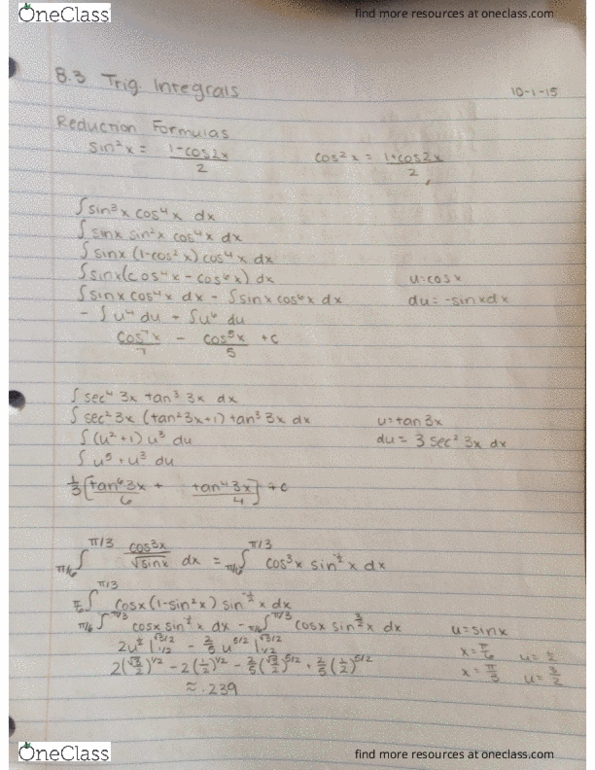 OneClass find more resources at oneclass.com
8.3 Trig. Integrals 10-1-15
Reduction Formulas
sin²x = 1-cos2x/2 cos²x = 1+cos2x/2
∫sin³x cos⁴x dx
∫sinx sin²x cos⁴x dx
∫sinx (1-cos²x) cos⁴x dx
∫sinx(cos⁴x - cos⁶x) dx u=cosx
∫sinx cos⁴x dx - ∫sinx cos⁶x dx du=-sinxdx
- ∫u⁴ du + ∫u⁶ du
cos⁷x/7 - cos⁵x/5 + c
∫sec⁴ 3x tan³ 3x dx
∫sec² 3x (tan²3x+1) tan³ 3x dx u=tan3x
∫(u²+1) u³ du du = 3 sec² 3x dx
∫u⁵ + u³ du
1/3 [tan⁶3x/6 + tan⁴3x/4] + c
π/6 ∫ π/3 cos³x/√sinx dx = π/6 ∫ π/3 cos³x sin^-½ x dx
π/6 ∫ π/3 cosx (1-sin²x) sin^-½ x dx
π/6 ∫ π/3 cosx sin^-½ x dx - π/6 ∫ π/3 cosx sin^3/2 x dx u=sinx
2u^½ |√3/2 1/2 - 2/5 u^5/2 |√3/2 1/2 x=π/6 u=½
2(√3/2)^1/2 - 2(½)^1/2 - 2/5(√3/2)^5/2 + 2/5(½)^5/2 x=π/3
≈ .239
OneClass find more resources at oneclass.com